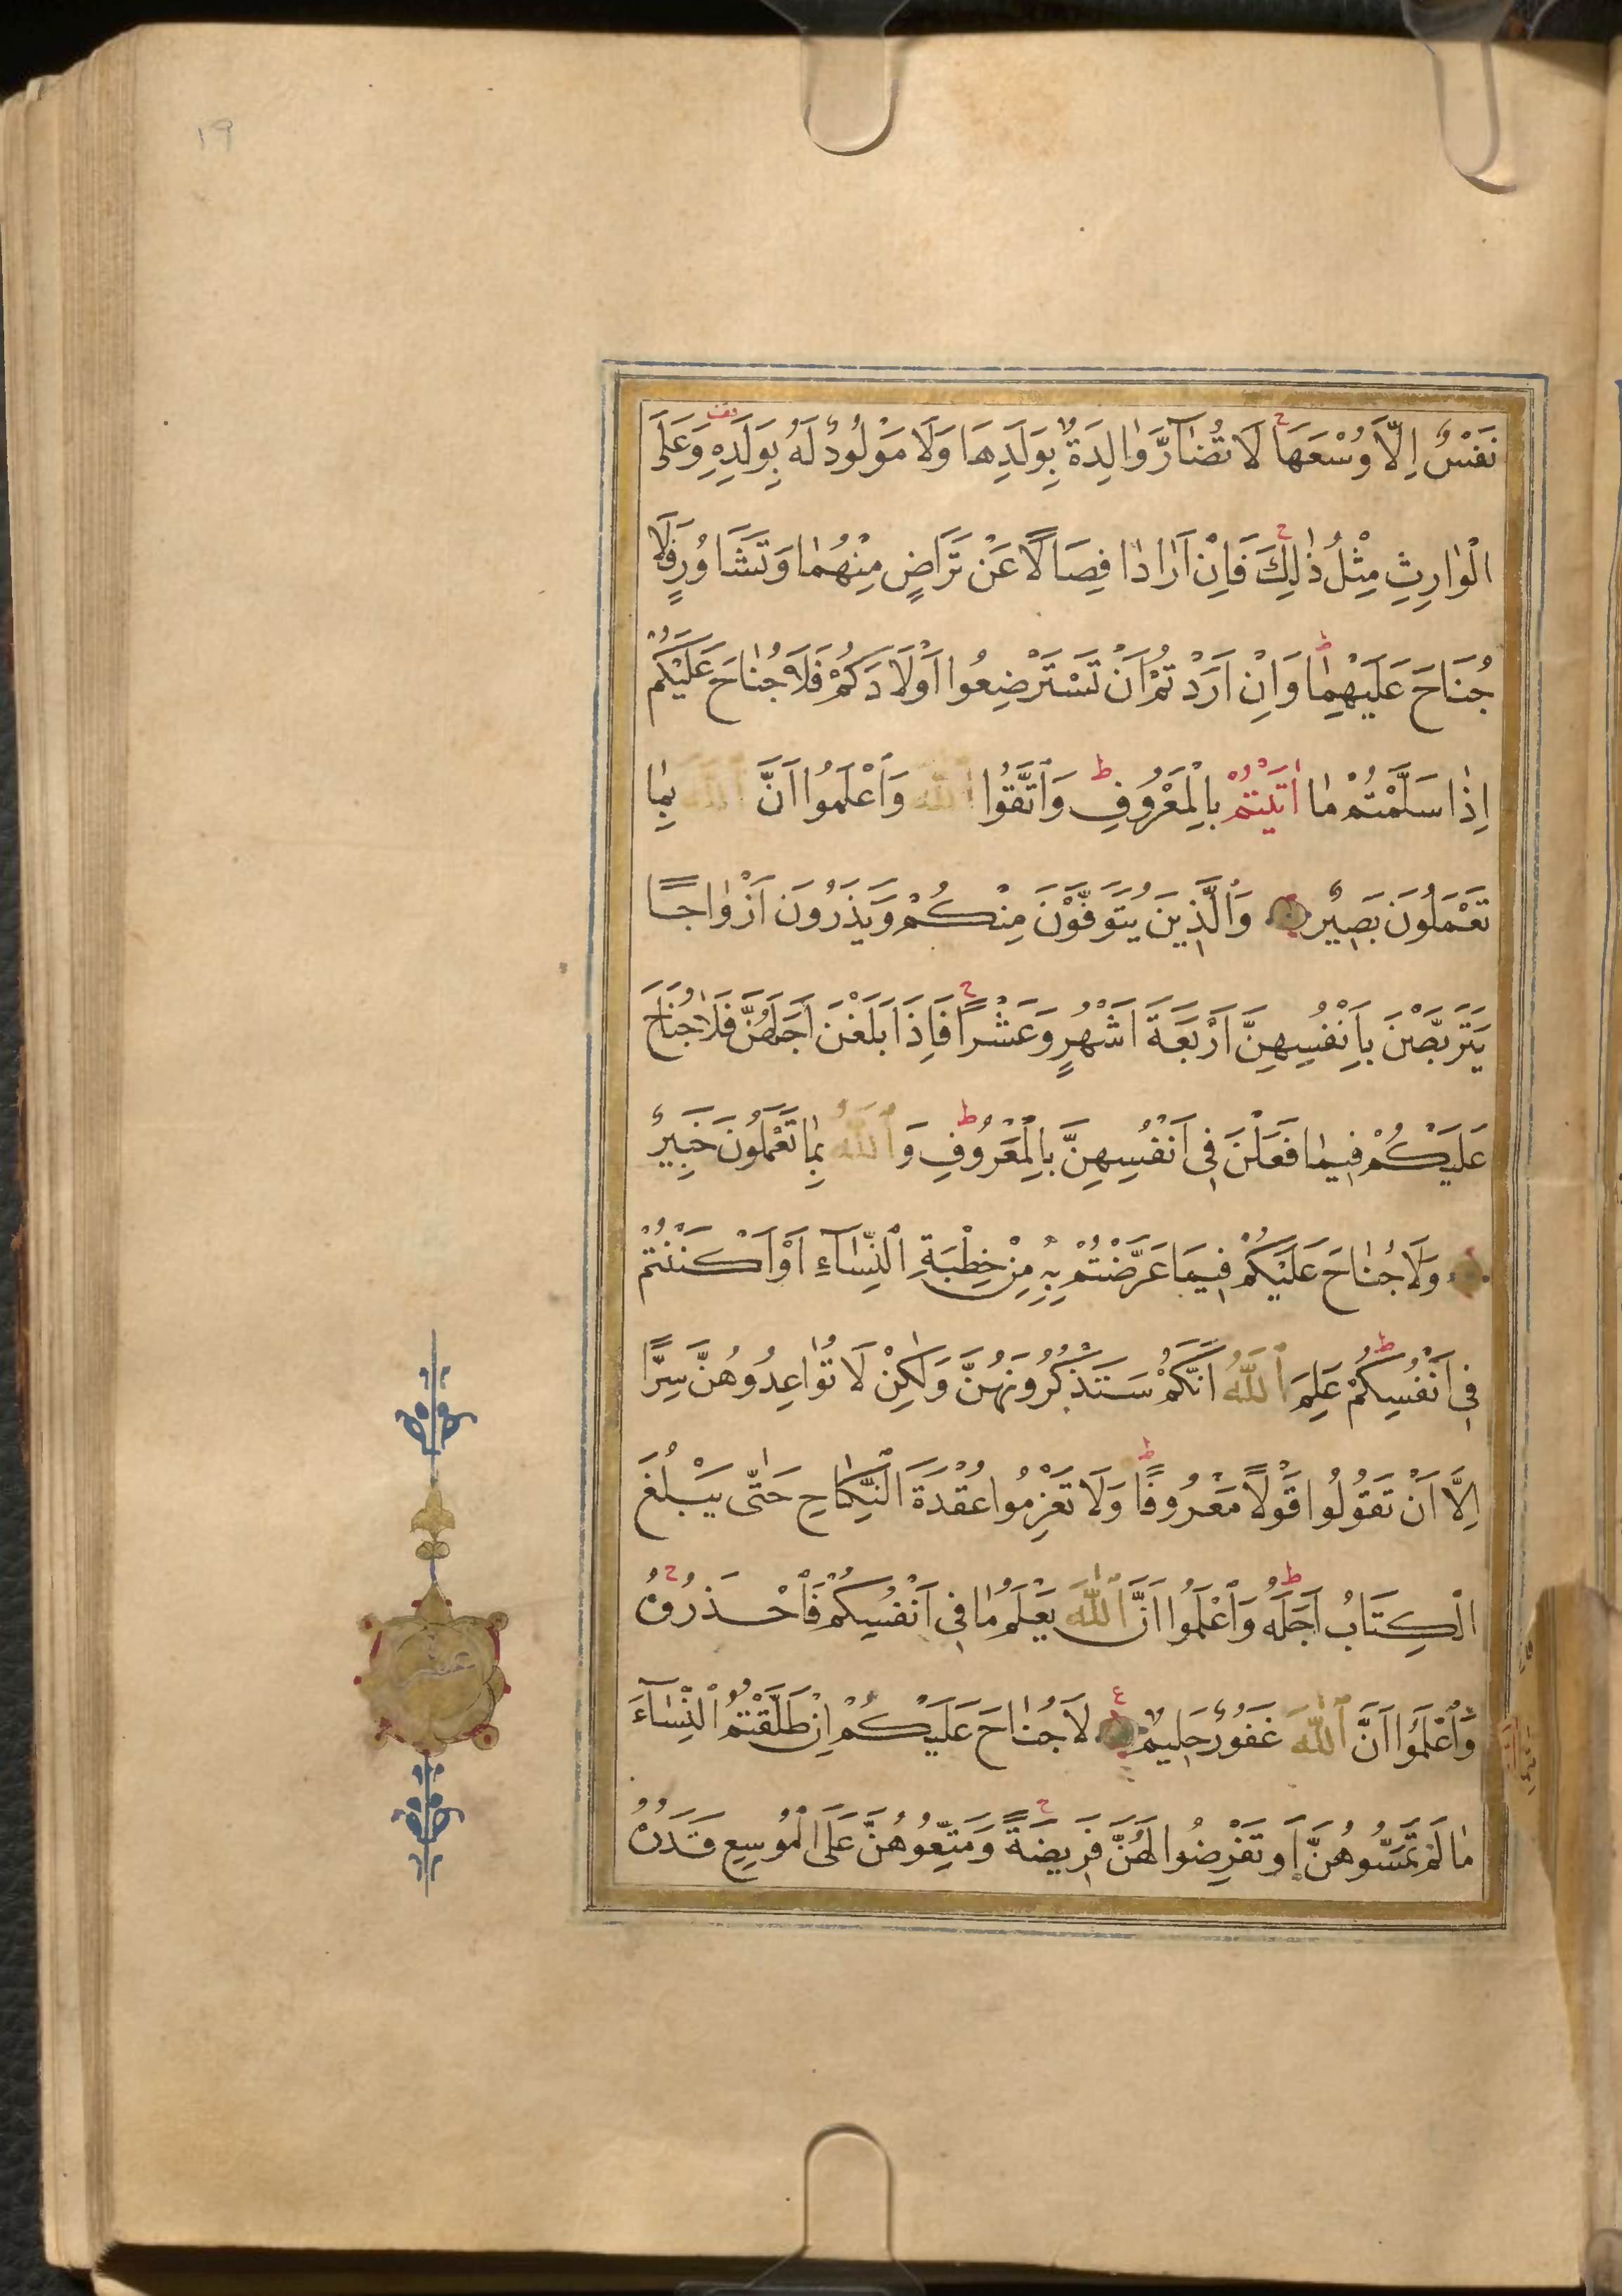 19
نَفْسٌ اِلَّا وُسْعَهَا ح لَا تُضَآرَّ وَالِدَةٌ بِوَلَدِهَا وَلَا مَوْلُودٌ لَهُ بِوَلَدِهِ وَعَلَى
الْوَارِثِ مِثْلُ ذٰلِكَ ح فَاِنْ اَرَادَا فِصَالًا عَنْ تَرَاضٍ مِنْهُمَا وَتَشَاوُرٍ فَلَا
جُنَاحَ عَلَيْهِمَا ط وَاِنْ اَرَدْتُمْ اَنْ تَسْتَرْضِعُوا اَوْلَادَكُمْ فَلَا جُنَاحَ عَلَيْكُمْ
اِذَا سَلَّمْتُمْ مَا اٰتَيْتُمْ بِالْمَعْرُوفِ ط وَٱتَّقُوا ٱللّٰهَ وَٱعْلَمُوا اَنَّ ٱللّٰهَ بِمَا
تَعْمَلُونَ بَصِيرٌ وَٱلَّذِينَ يُتَوَفَّوْنَ مِنْكُمْ وَيَذَرُونَ اَزْوَاجًا
يَتَرَبَّصْنَ بِاَنْفُسِهِنَّ اَرْبَعَةَ اَشْهُرٍ وَعَشْرًا ح فَاِذَا بَلَغْنَ اَجَلَهُنَّ فَلَا جُنَاحَ
عَلَيْكُمْ فِيمَا فَعَلْنَ فِى اَنْفُسِهِنَّ بِالْمَعْرُوفِ ط وَٱللّٰهُ بِمَا تَعْمَلُونَ خَبِيرٌ
وَلَا جُنَاحَ عَلَيْكُمْ فِيمَا عَرَّضْتُمْ بِهِ مِنْ خِطْبَةِ ٱلنِّسَآءِ اَوْ اَكْنَنْتُمْ
فِى اَنْفُسِكُمْ ط عَلِمَ ٱللّٰهُ اَنَّكُمْ سَتَذْكُرُونَهُنَّ وَلٰكِنْ لَا تُوَاعِدُوهُنَّ سِرًّا
اِلَّا اَنْ تَقُولُوا قَوْلًا مَعْرُوفًا ط وَلَا تَعْزِمُوا عُقْدَةَ ٱلنِّكَاحِ حَتّٰى يَبْلُغَ
الْكِتَابُ اَجَلَهُ ط وَٱعْلَمُوا اَنَّ ٱللّٰهَ يَعْلَمُ مَا فِى اَنْفُسِكُمْ فَٱحْذَرُوهُ ح
وَٱعْلَمُوا اَنَّ ٱللّٰهَ غَفُورٌ حَلِيمٌ ع لَا جُنَاحَ عَلَيْكُمْ اِنْ طَلَّقْتُمُ ٱلنِّسَآءَ
مَا لَمْ تَمَسُّوهُنَّ اَوْ تَفْرِضُوا لَهُنَّ فَرِيضَةً ح وَمَتِّعُوهُنَّ عَلَى الْمُوسِعِ قَدَرُهُ
عشر